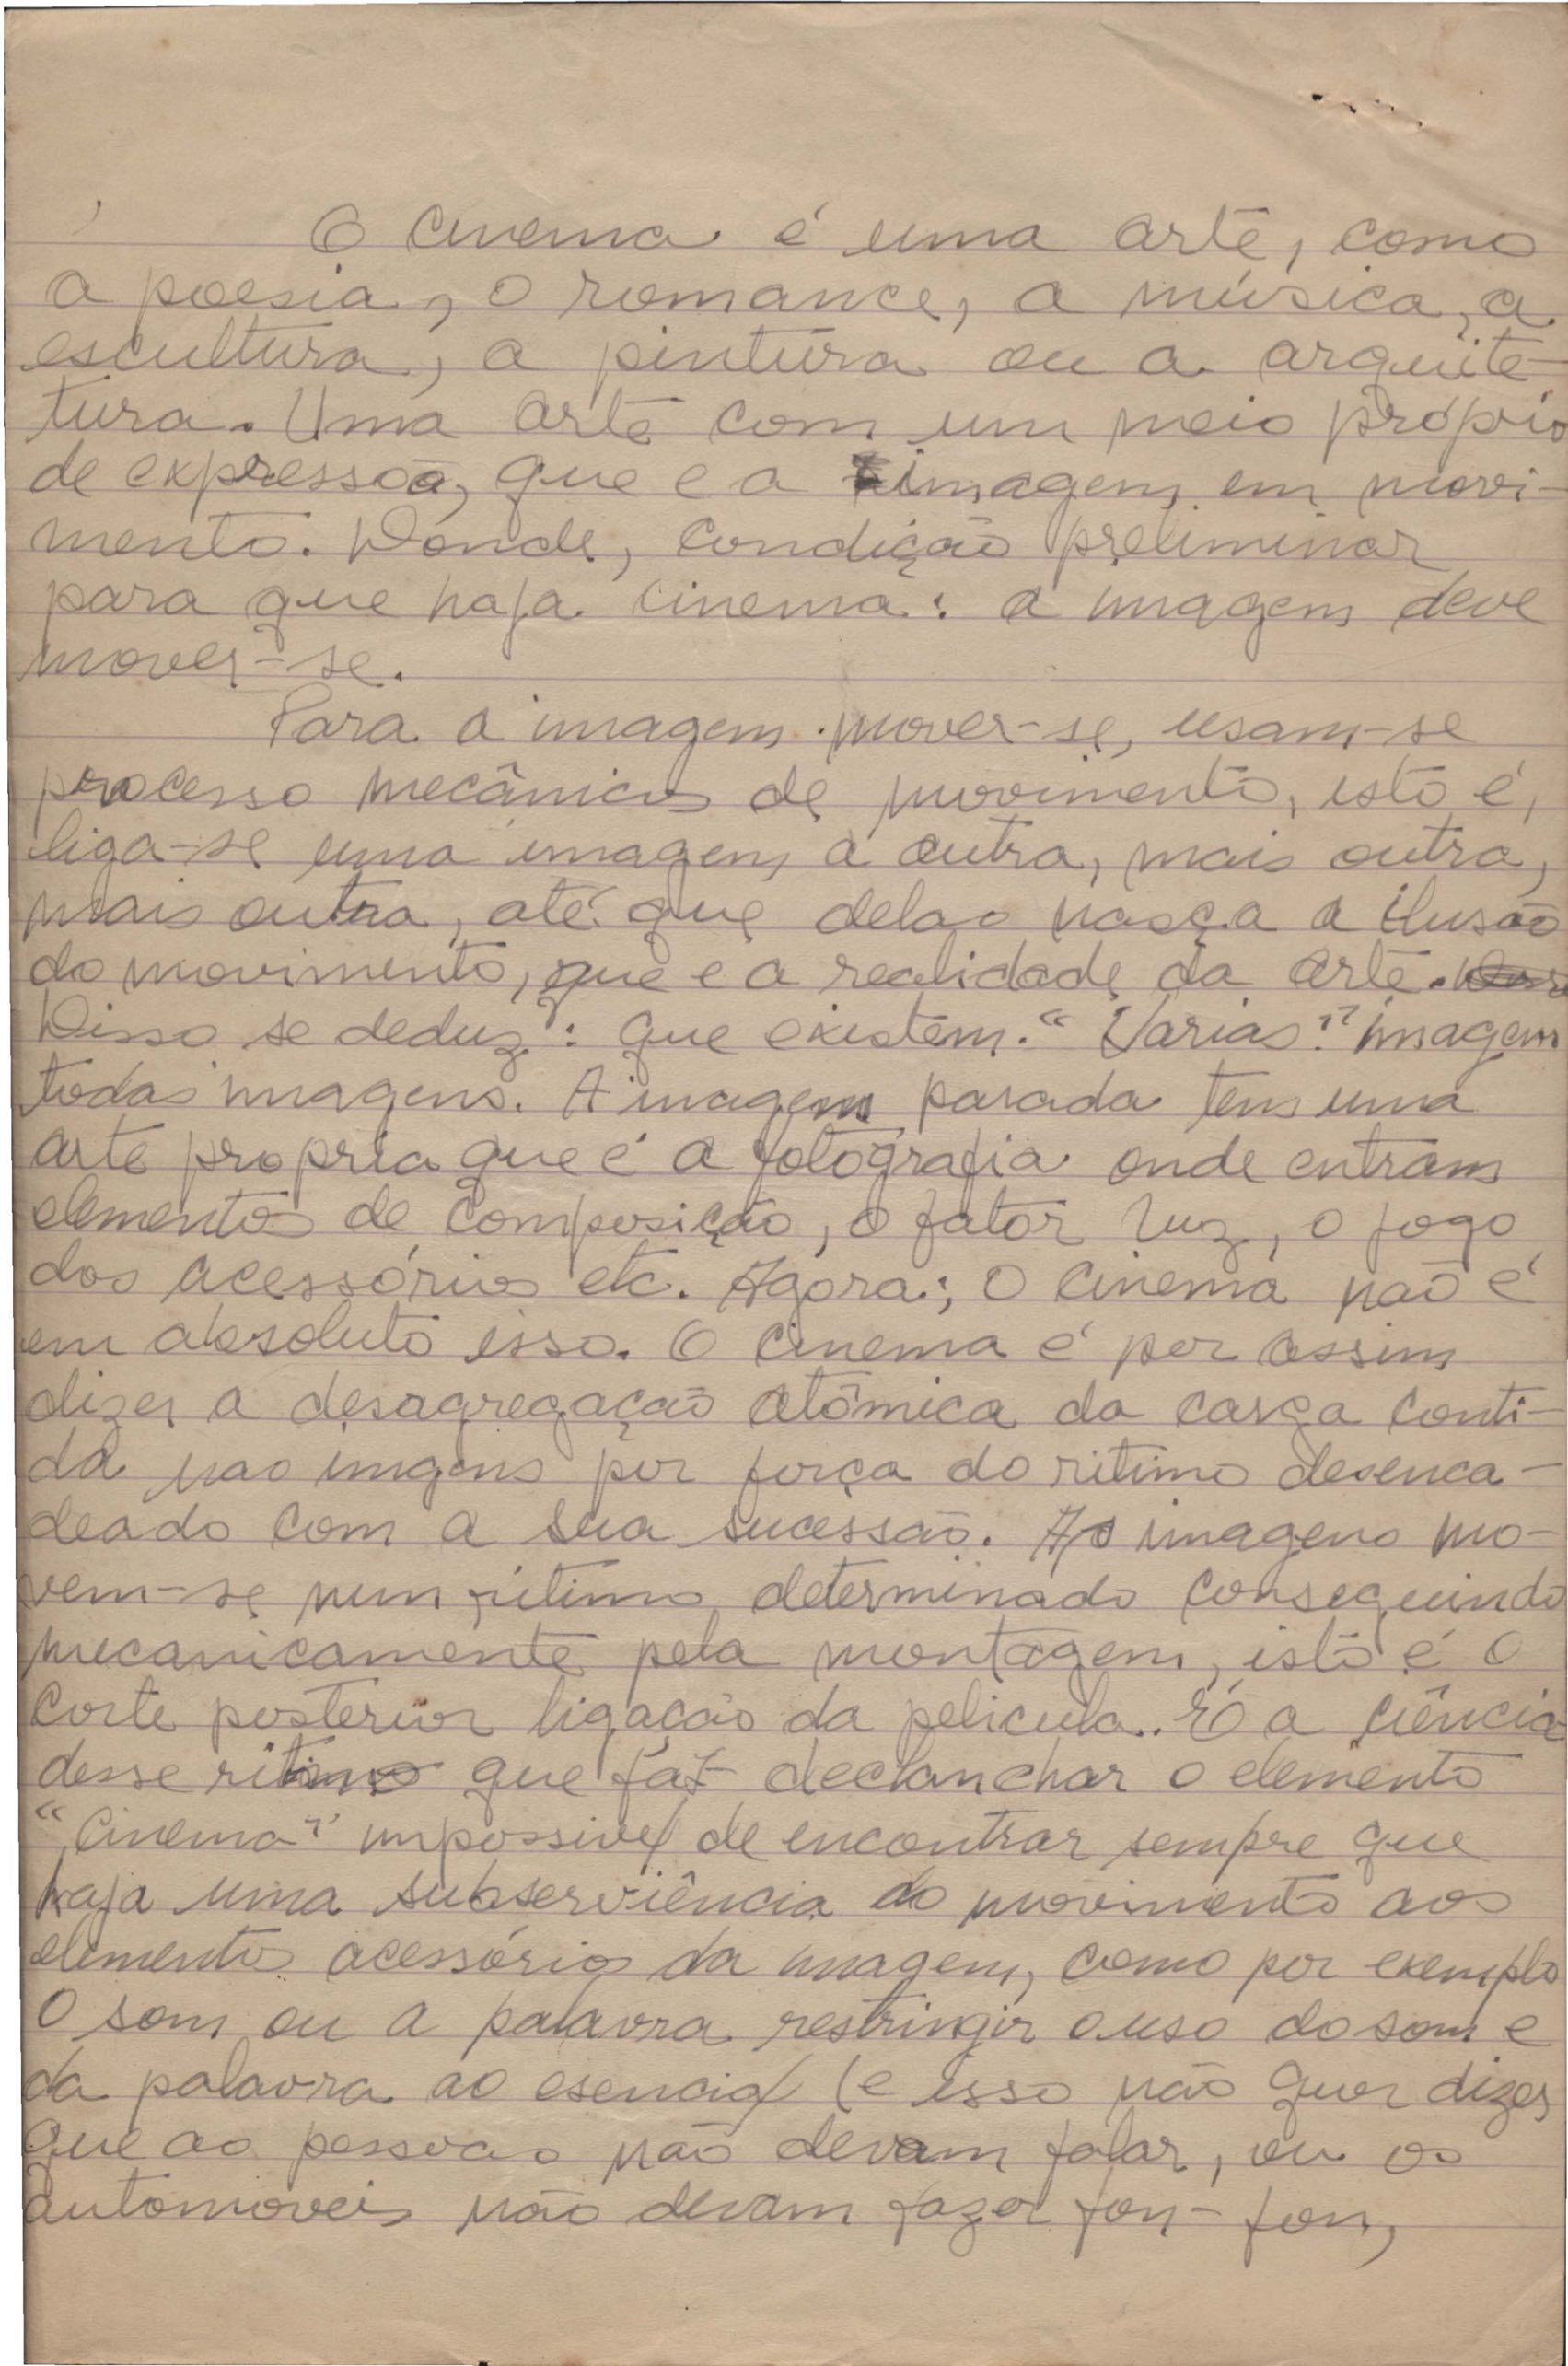 O cinema é uma arte, como
a poesia, o romance, a música, a
escultura, a pintura ou a arquite-
tura. Uma arte com um meio próprio
de expressão, que e a imagem em movi-
mento. Donde, condição preliminar
para que haja cinema: a imagem deve
mover-se.
Para a imagem mover-se, usam-se
processo mecânicos de movimento, isto é,
liga-se uma imagem á outra, mais outra,
mais outra, até que delas nasça a ilusão
do movimento, que e a realidade da arte.
Disso se deduz: que existem "Varias" imagem
todas imagens. A imagem parada tem uma
arte propria que é a fotografia onde entram
elementos de composição, o fator luz, o jogo
dos acessórios etc. Agora:, o cinema não é
em absoluto isso. O cinema é por assim
dizer a desagregação atômica da carga conti-
da nas imgens por força do ritimo desenca-
deado com a sua sucessão. As imagens mo-
vem-se num ritimo determinado conseguindo
mecanicamente pela montagem, isto é o
corte posterior ligação da pelicula. É a ciência
desse ritimo que faz declanchar o elemento
"Cinema" impossivel de encontrar sempre que
haja uma subserviência do movimento aos
elementos acessórios da imagem, como por exemplo
o som ou a palavra restringir o uso do som e
da palavra ao esencial (e isso não quer dizer
que as pessoas não devam falar, ou os
automoveis não devam fazer fon-fon,